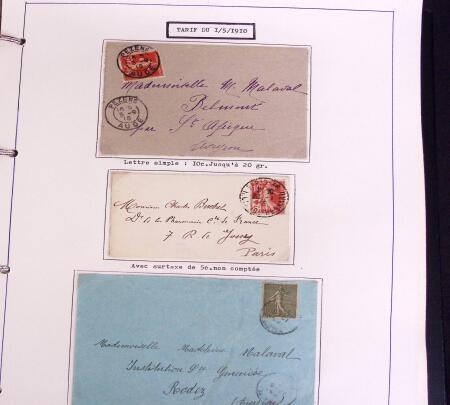 TARIF DU 1/5/1910
PEZENS
AUDE
Mademoiselle M. Malaval
Belmont
PEZENS
AUDE
par St Affrique
Aveyron
Lettre simple : 10c.Jusqu'à 20 gr.
Monsieur Charles Buchet
Dr de la Pharmacie Cle de France
7 R. de Jouy
Paris
Avec surtaxe de 5c.non comptée
Mademoiselle Madeleine Malaval
Institution Ste Geneviève
Rodez
(Aveyron)